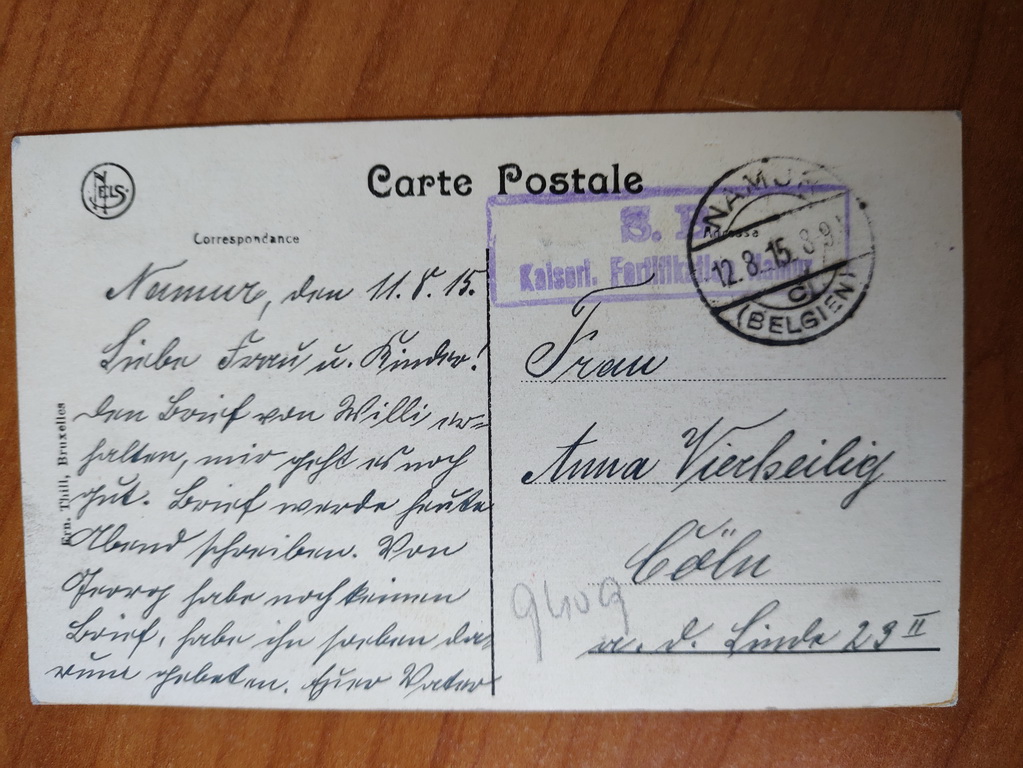 NELS
Carte Postale
Correspondance
Adresse
S. B.
Kaiserl. Fortifikation Namur
NAMUR
12.8.15. 8-9
(BELGIEN)
Namur, den 11.8.15.
Liebe Frau u. Kinder!
Den Brief von Willi er=
halten, mir geht es noch
gut. Brief werde heute
Abend schreiben. Von
Georg habe noch keinen
Brief, habe ihn soeben da=
rum gebeten. Euer Vater
Ern. Thill, Bruxelles
Frau
Anna Vierheilig
Cöln
a. d. Linde 23 II